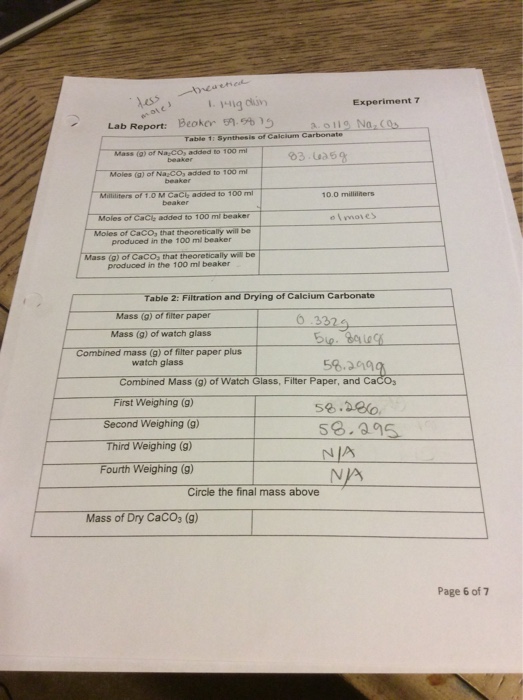 less
moles
1.141g
Experiment 7
Lab Report: Beaker 59.58
2.011g Na2CO3
Table 1: Synthesis of Calcium Carbonate
Mass (g) of Na2CO3 added to 100 ml
beaker
Moles (g) of Na2CO3 added to 100 ml
beaker
Milliliters of 1.0 M CaCl2 added to 100 ml
beaker
10.0 milliliters
Moles of CaCl2 added to 100 ml beaker
moles
Moles of CaCO3 that theoretically will be
produced in the 100 ml beaker
Mass (g) of CaCO3 that theoretically will be
produced in the 100 ml beaker
Table 2: Filtration and Drying of Calcium Carbonate
Mass (g) of filter paper
0.332g
Mass (g) of watch glass
Combined mass (g) of filter paper plus
watch glass
58.299g
Combined Mass (g) of Watch Glass, Filter Paper, and CaCO3
First Weighing (g)
58.286
Second Weighing (g)
58.295
Third Weighing (g)
N/A
Fourth Weighing (g)
N/A
Circle the final mass above
Mass of Dry CaCO3 (g)
Page 6 of 7